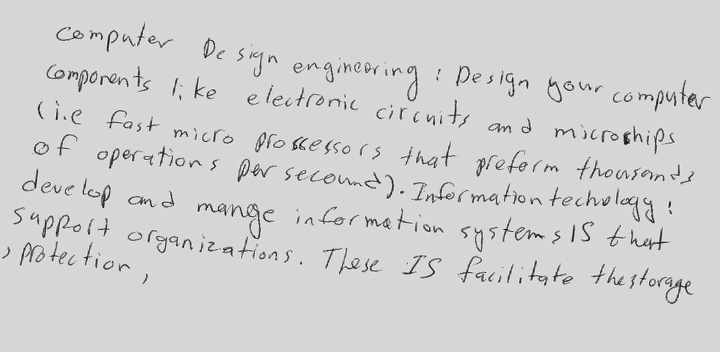 computer Design engineering : Design your computer
components like electronic circuits and microships
(i.e fast micro prossessors that preform thousands
of operations per secound). Information techology :
develop and mange information systems IS that
support organizations. These IS facilitate the storage
, protection ,